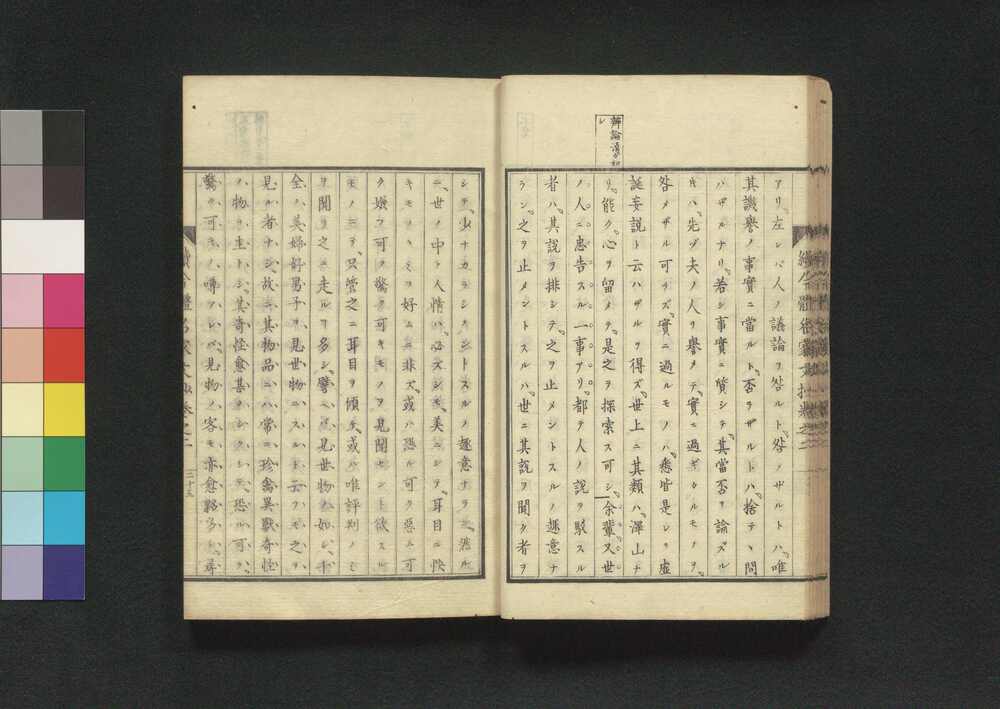 辨論
アリ。左レバ人ノ議論ヲ咎ルト、咎メザルトハ、唯
其譏譽ノ事實ニ當ルト、否ラザルトハ、捨テヽ問
ハザルナリ。若シ事實ニ質シテ、其當否ヲ論ズル
キハ、先ヅ夫ノ人ヲ譽タテ、實ニ過ギタルモノヲ
咎メザル可ラズ。實ニ過ルモノハ、悉皆是レ虛
誕妄説ト云ハザルヲ得ズ。世上ニ其類ハ、澤山ナ
リ。能ク心ヲ留メテ、是之ヲ探索ス可シ。余輩又世
ノ人ニ忠告スル一事アリ。都テ人ノ説ヲ駁スル
者ハ、其説ヲ排シテ、之ヲ止メントスルノ趣意ナ
ラン。之ヲ止メントスルハ、世ニ其説ヲ聞ク者ヲ
シテ、少ナカラシメントスルノ趣意ナラン。然ル
ニ、世ノ中ノ人情ハ、必ズシモ、美ニシテ、耳目ニ快
キモノヽミヲ好ムニ非ズ。或ハ恐ル可ク惡ム可
ク嫌フ可ク驚ク可キモノヲ見聞セント欲スル
モノニテ、只管之ニ耳目ヲ傾ケ、或ハ唯評判ノミ
ヲ聞テ之ニ走ルモノ多シ。譬ヘバ見世物ノ如シ。十
全ノ美婦好男子ヲ、見世物ニスルト云フモ、之ヲ
見ル者ナシ。故ニ其物品ニハ常ニ珍禽異獸奇怪
ノ物ヲ主トシ、其奇怪愈甚タシクシテ、恐ル可ク、
驚ク可キノ噂アレバ、見物ノ客モ亦愈夥多シ。尋
三十五